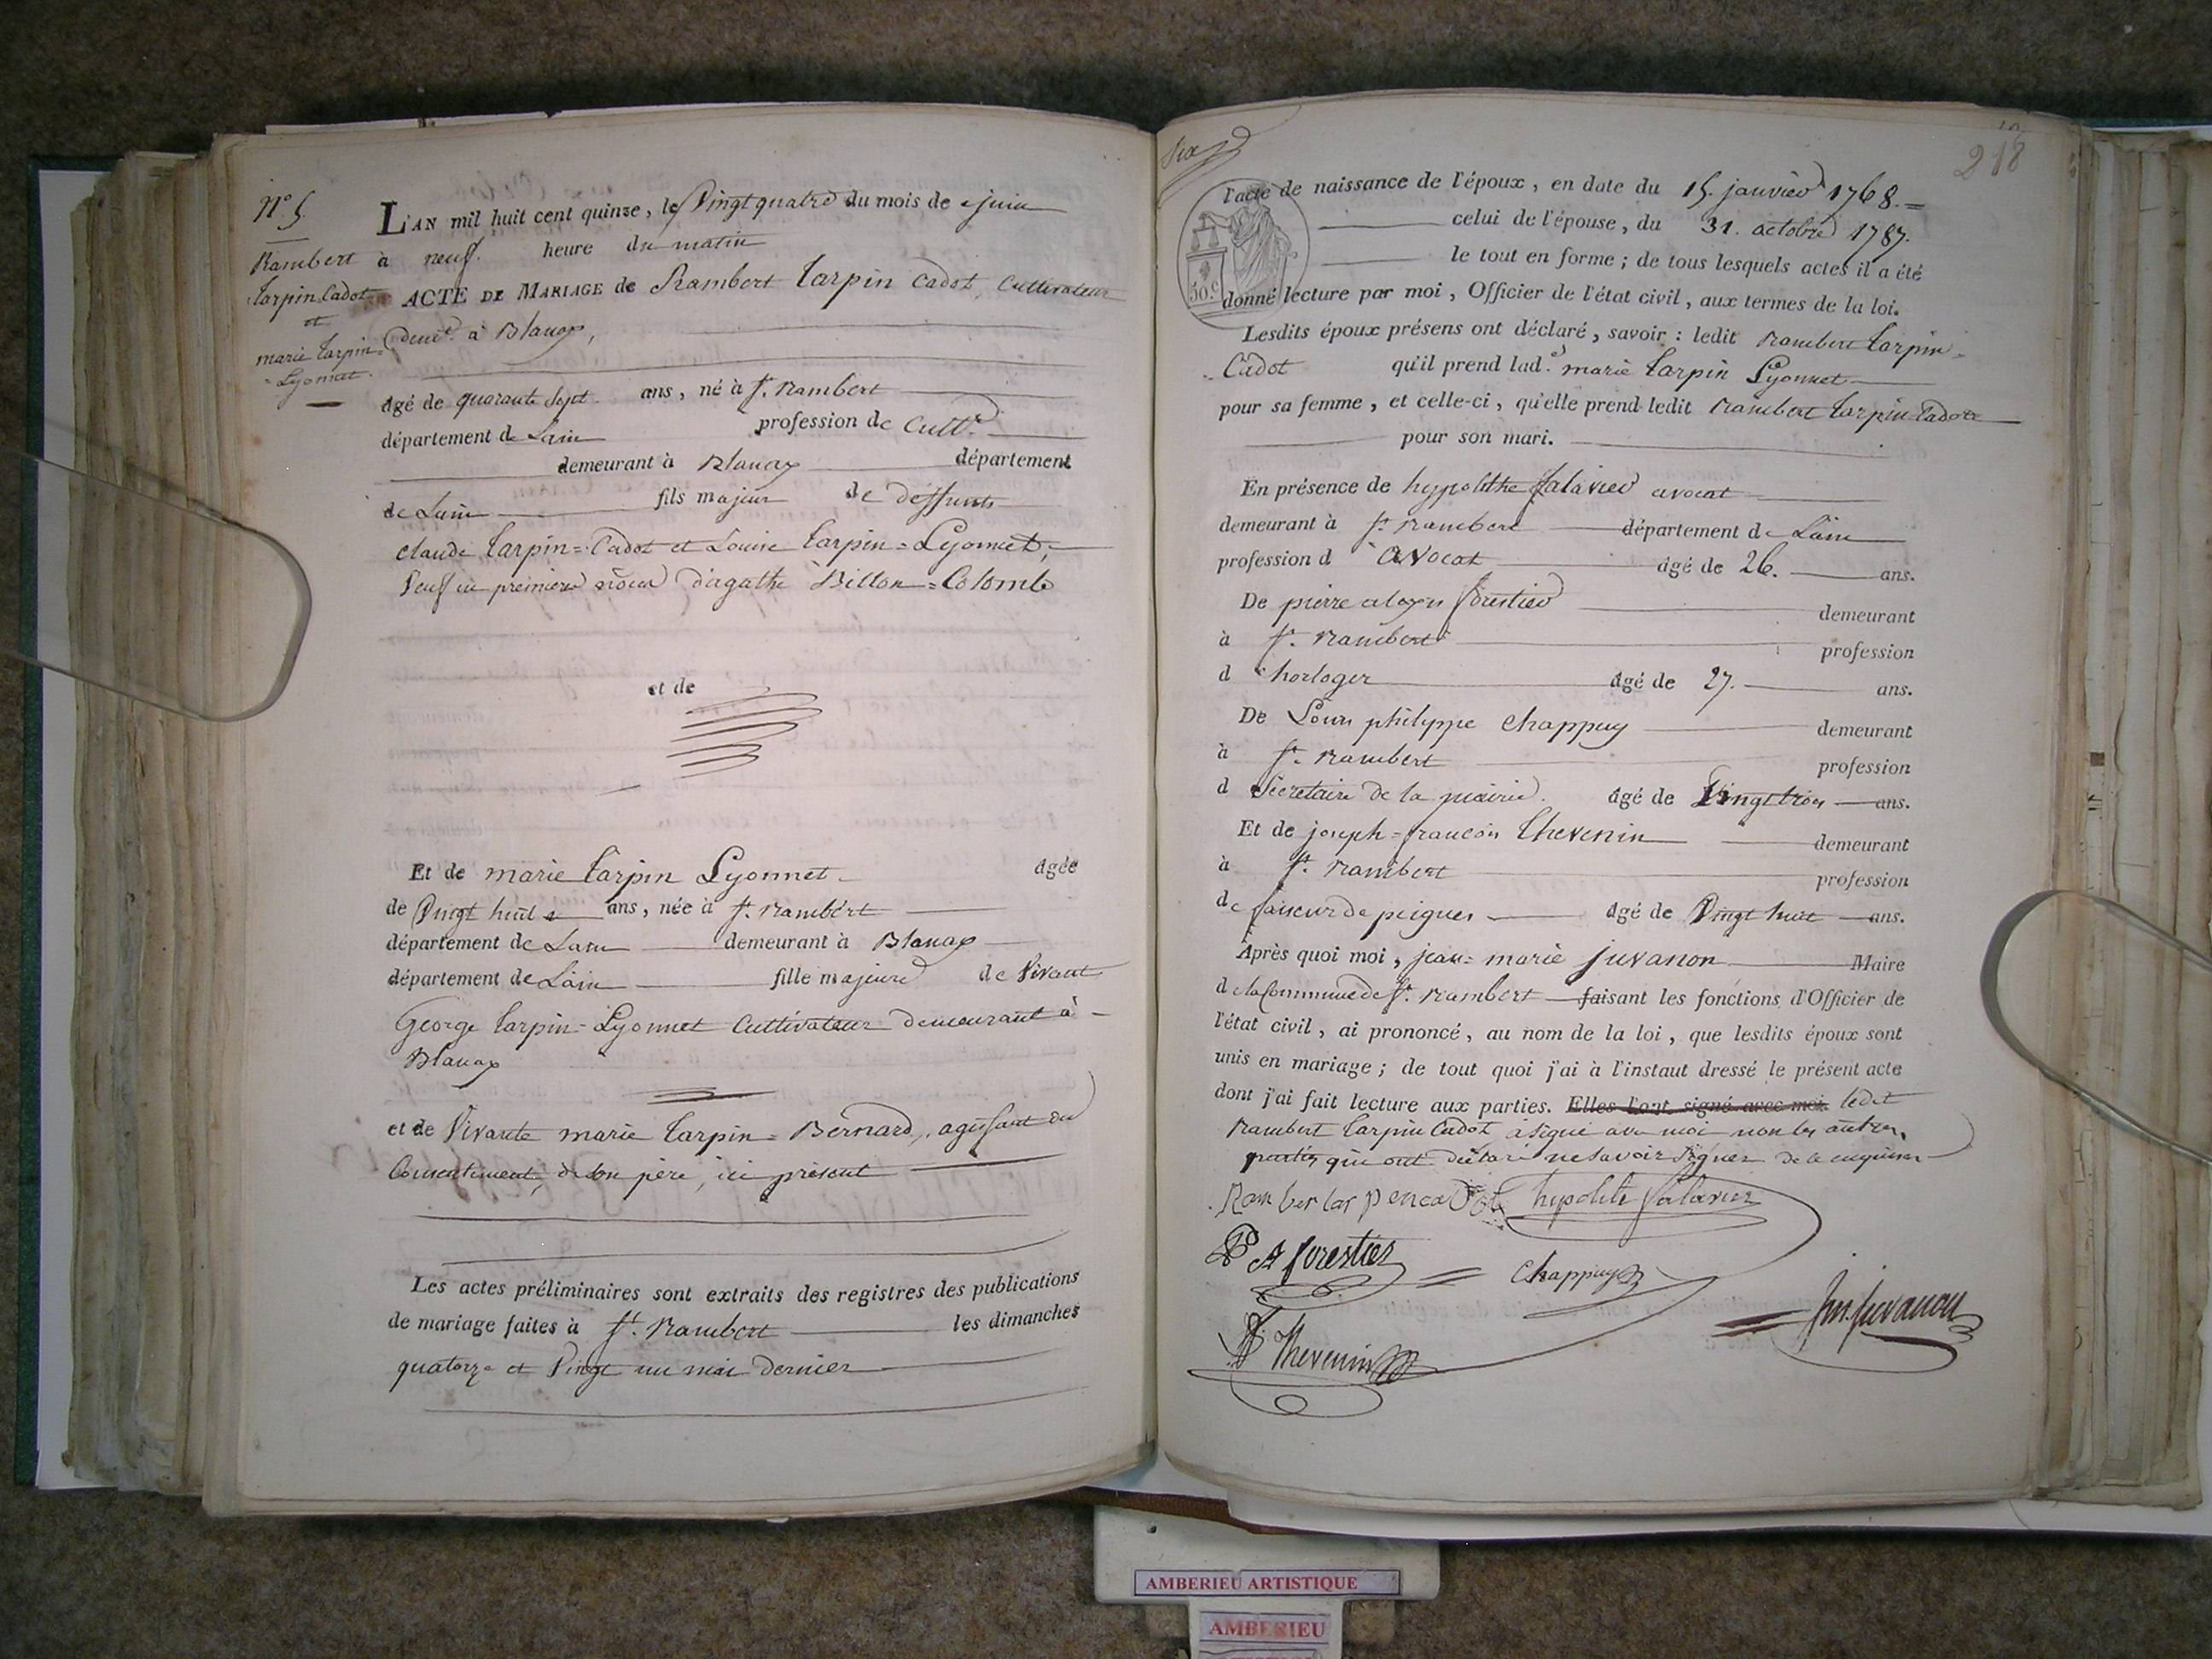 N.º 5.
Rambert
tarpin Cadot
et
marie tarpin=
=Lyonnet.
L'AN mil huit cent quinze, le Vingt quatre du mois de juin
à neuf heure du matin
ACTE DE MARIAGE de Rambert tarpin Cadot, Cultivateur
demt. à Blanaz,
âgé de quarante sept ans, né à St. Rambert
département de Lain profession de Cultr.
demeurant à Blanaz département
de Lain fils majeur de deffunts
claude tarpin=Cadot et Louise tarpin=Lyonnet,
Veuf en premiere nôces d'agathe Billon=Colomb
et de
Et de marie tarpin Lyonnet âgée
de Vingt huit ans, née à St. Rambert
département de Lain demeurant à Blanaz
département de Lain fille majeure de Vivant
George tarpin=Lyonnet Cultivateur demeurant à
Blanaz
et de Vivante marie tarpin=Bernard, agissant du
Consentement, de son père, ici présent
Les actes préliminaires sont extraits des registres des publications
de mariage faites à St. Rambert les dimanches
quatorze et Vingt un mai dernier
218
50.c
l'acte de naissance de l'époux, en date du 15. janvier 1768.=
celui de l'épouse, du 31. octobre 1787.
le tout en forme; de tous lesquels actes il a été
donné lecture par moi, Officier de l'état civil, aux termes de la loi.
Lesdits époux présens ont déclaré, savoir: ledit Rambert tarpin=
Cadot qu'il prend lad.e marie tarpin Lyonnet
pour sa femme, et celle-ci, qu'elle prend ledit Rambert tarpin Cadot
pour son mari.
En présence de hypolithe falavier avocat
demeurant à St. Rambert département de Lain
profession d'avocat âgé de 26. ans.
De pierre aloys forestier demeurant
à St. Rambert profession
d'horloger âgé de 27. ans.
De Louis philippe Chappuy demeurant
à St. Rambert profession
d Secretaire de la mairie. âgé de Vingt trois ans.
Et de joseph=françois thevenin demeurant
à St. Rambert profession
de faiseur de peignes âgé de Vingt huit ans.
Après quoi moi, jean=marie juvanon Maire
de la Commune de St. Rambert faisant les fonctions d'Officier de
l'état civil, ai prononcé, au nom de la loi, que lesdits époux sont
unis en mariage; de tout quoi j'ai à l'instaut dressé le présent acte
dont j'ai fait lecture aux parties. Elles l'ont signé avec moi. ledit
Rambert tarpin Cadot a signé avec moi non les autres
parties qui ont déclaré ne savoir signer de ce enquises
Ramber tarpencadot hypolite falavier
P A forestier Chappuy
jm. juvanon
Jf. Thevenin
AMBERIEU ARTISTIQUE
AMBERIEU